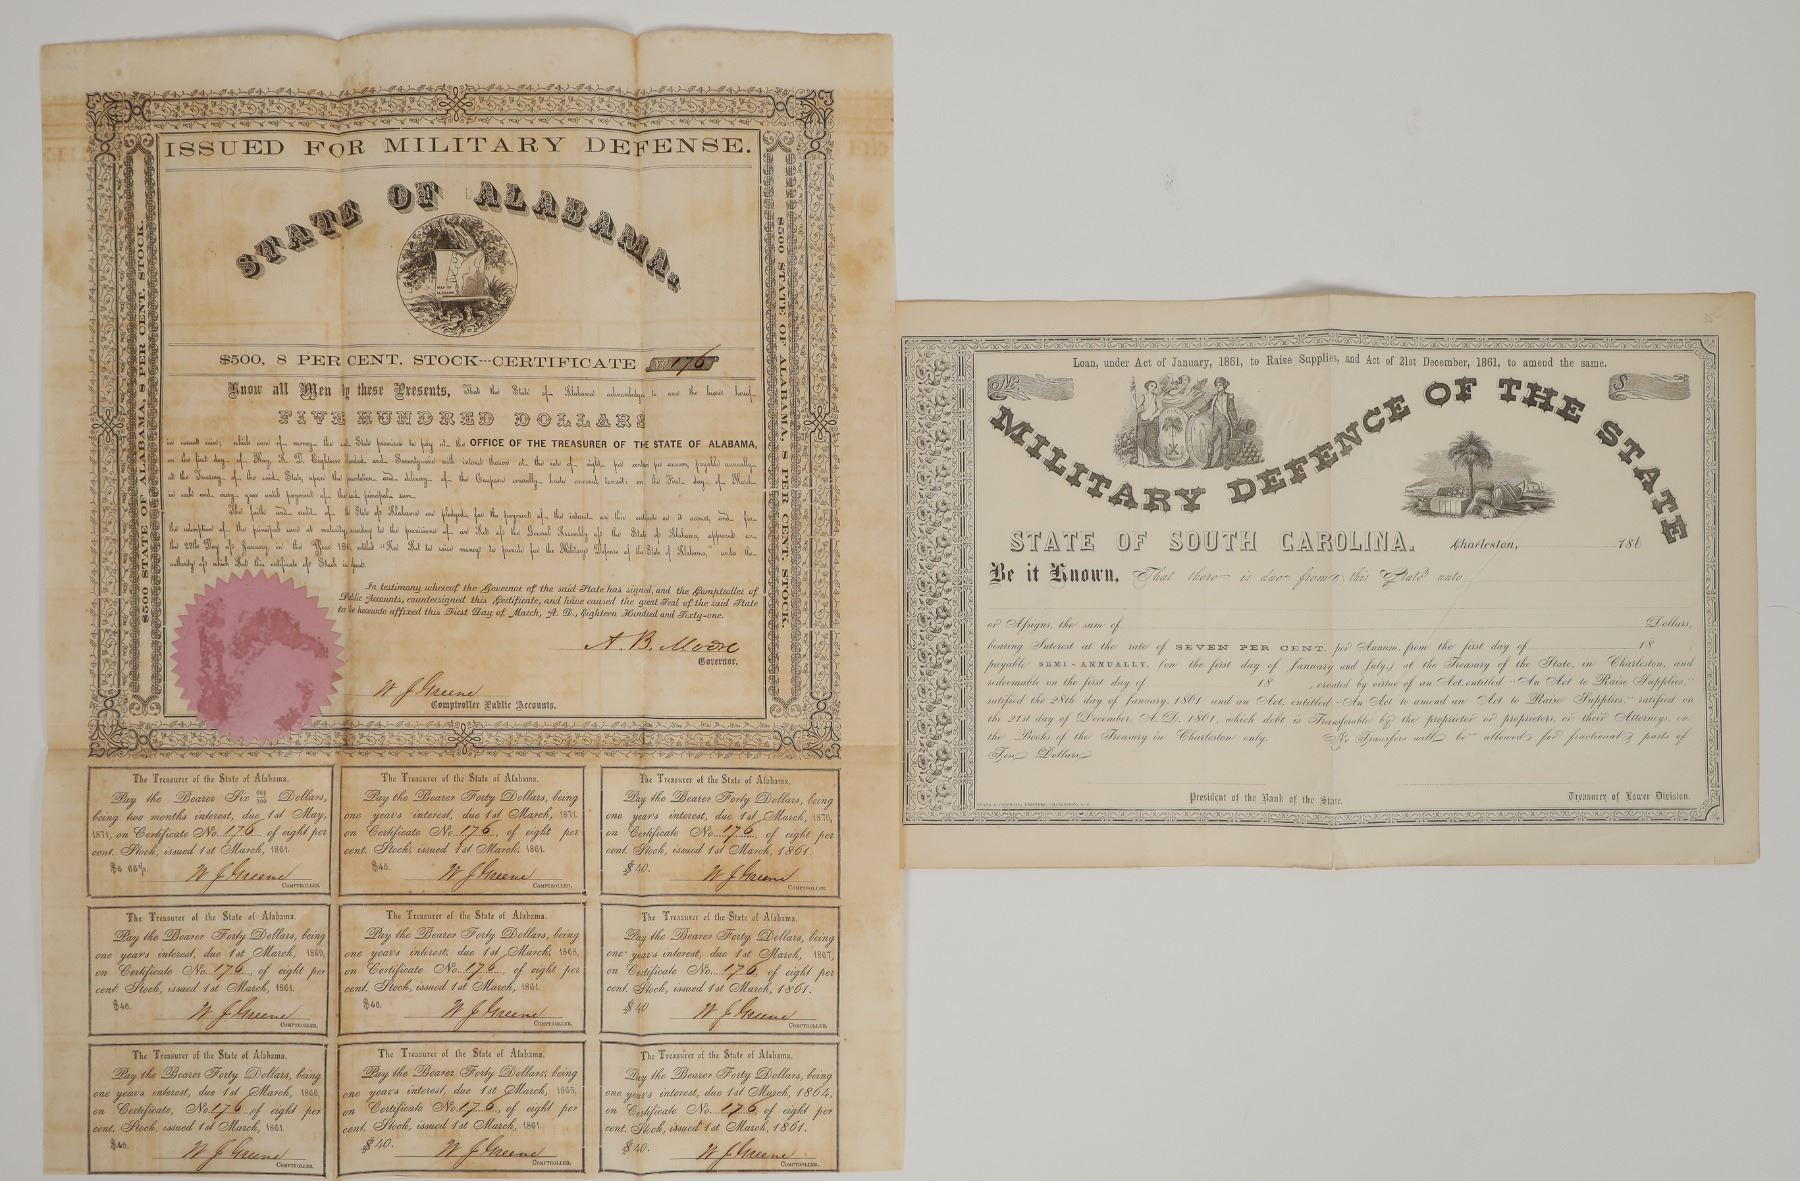 ISSUED FOR MILITARY DEFENSE.
STATE OF ALABAMA.
MAP OF
ALABAMA
$500 STATE OF ALABAMA, 8 PER CENT. STOCK.
$500 STATE OF ALABAMA, 8 PER CENT. STOCK.
$500, 8 PER CENT. STOCK---CERTIFICATE No. 176
Know all Men by these Presents, That the State of Alabama acknowledges to owe the bearer hereof
FIVE HUNDRED DOLLARS
which sum of money the said State promises to pay at the OFFICE OF THE TREASURER OF THE STATE OF ALABAMA,
on the first day of May, A. D. Eighteen Hundred and Seventy-one with interest thereon at the rate of eight per centum per annum, payable annually
at the Treasury of the said State, upon the presentation and delivery of the Coupons severally hereto annexed, on the First day of March
in each and every year until payment of the said principal sum.
The faith and credit of the State of Alabama are pledged for the payment of the interest on this as it accrues, and for
the redemption of the principal sum at maturity, according to the provisions of an Act of the General Assembly of the State of Alabama, approved on
the 29th Day of January in the Year 1861, entitled "An Act to raise money to provide for the Military Defense of the State of Alabama," under the
authority of which Act this certificate of Stock is issued.
In testimony whereof the Governor of the said State has signed, and the Comptroller of
Public Accounts, countersigned this Certificate, and have caused the great Seal of the said State
to be hereunto affixed this First Day of March, A. D., Eighteen Hundred and Sixty-one.
A. B. Moore
Governor.
W J Greene
Comptroller Public Accounts.
The Treasurer of the State of Alabama.
Pay the Bearer Six 66⅔/100 Dollars,
being two months interest, due 1st May,
1871, on Certificate No. 176 of eight per
cent. Stock, issued 1st March, 1861.
$6 66⅔.
W J Greene
COMPTROLLER.
The Treasurer of the State of Alabama.
Pay the Bearer Forty Dollars, being
one year's interest, due 1st March, 1871.
on Certificate No. 176, of eight per
cent. Stock, issued 1st March, 1861.
$40.
W J Greene
COMPTROLLER.
The Treasurer of the State of Alabama.
Pay the Bearer Forty Dollars, being
one year's interest, due 1st March, 1870,
on Certificate No. 176, of eight per
cent. Stock, issued 1st March, 1861.
$40.
W J Greene
COMPTROLLER.
The Treasurer of the State of Alabama.
Pay the Bearer Forty Dollars, being
one year's interest, due 1st March, 1869,
on Certificate No. 176, of eight per
cent. Stock, issued 1st March, 1861.
$40.
W J Greene
COMPTROLLER.
The Treasurer of the State of Alabama.
Pay the Bearer Forty Dollars, being
one year's interest, due 1st March, 1868,
on Certificate No. 176, of eight per
cent. Stock, issued 1st March, 1861.
$40.
W J Greene
COMPTROLLER.
The Treasurer of the State of Alabama.
Pay the Bearer Forty Dollars, being
one year's interest, due 1st March, 1867,
on Certificate No. 176, of eight per
cent. Stock, issued 1st March, 1861.
$40
W J Greene
COMPTROLLER.
The Treasurer of the State of Alabama.
Pay the Bearer Forty Dollars, being
one year's interest, due 1st March, 1866,
on Certificate, No. 176 of eight per
cent. Stock, issued 1st March, 1861.
$40.
W J Greene
COMPTROLLER.
The Treasurer of the State of Alabama.
Pay the Bearer Forty Dollars, being
one year's interest, due 1st March, 1865,
on Certificate No. 176, of eight per
cent. Stock, issued 1st March, 1861.
$40.
W J Greene
COMPTROLLER.
The Treasurer of the State of Alabama.
Pay the Bearer Forty Dollars, being
one year's interest, due 1st March, 1864,
on Certificate No. 176 of eight per
cent. Stock, issued 1st March, 1861.
$40.
W J Greene
COMPTROLLER.
35
Loan, under Act of January, 1861, to Raise Supplies, and Act of 21st December, 1861, to amend the same.
No.
$
MILITARY DEFENCE OF THE STATE
STATE OF SOUTH CAROLINA.
Charleston, 186
Be it Known, That there is due from this State unto
or Assigns, the sum of Dollars,
bearing Interest at the rate of SEVEN PER CENT. per Annum, from the first day of 18
payable SEMI-ANNUALLY, (on the first day of January and July,) at the Treasury of the State, in Charleston, and
redeemable on the first day of 18 , created by virtue of an Act, entitled "An Act to Raise Supplies,"
ratified the 28th day of January, 1861 and an Act, entitled "An Act to amend an Act to Raise Supplies," ratified on
the 21st day of December, A. D. 1861, which debt is Transferable by the proprietor or proprietors, or their Attorneys, on
the Books of the Treasury in Charleston only. No Transfers will be allowed for fractional parts of
Ten Dollars
President of the Bank of the State.
Treasurer of Lower Division.
EVANS & COGSWELL, PRINTERS, CHARLESTON, S. C.